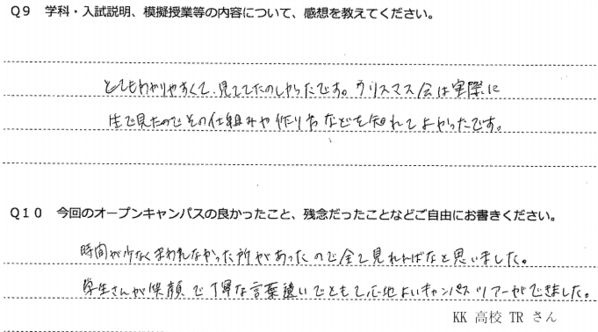 Q9 学科・入試説明、模擬授業等の内容について、感想を教えてください。
とてもわかりやすくて、見ててたのしかったです。クリスマス会は実際に
生で見たのでその仕組みや作り方などを知れてよかったです。
Q10 今回のオープンキャンパスの良かったこと、残念だったことなどご自由にお書きください。
時間が少なくまわれなかった所があったので全て見れればなと思いました。
学生さんが笑顔で丁寧な言葉遣いでとても心地よいキャンパスツアーができました。
KK 高校 TR さん